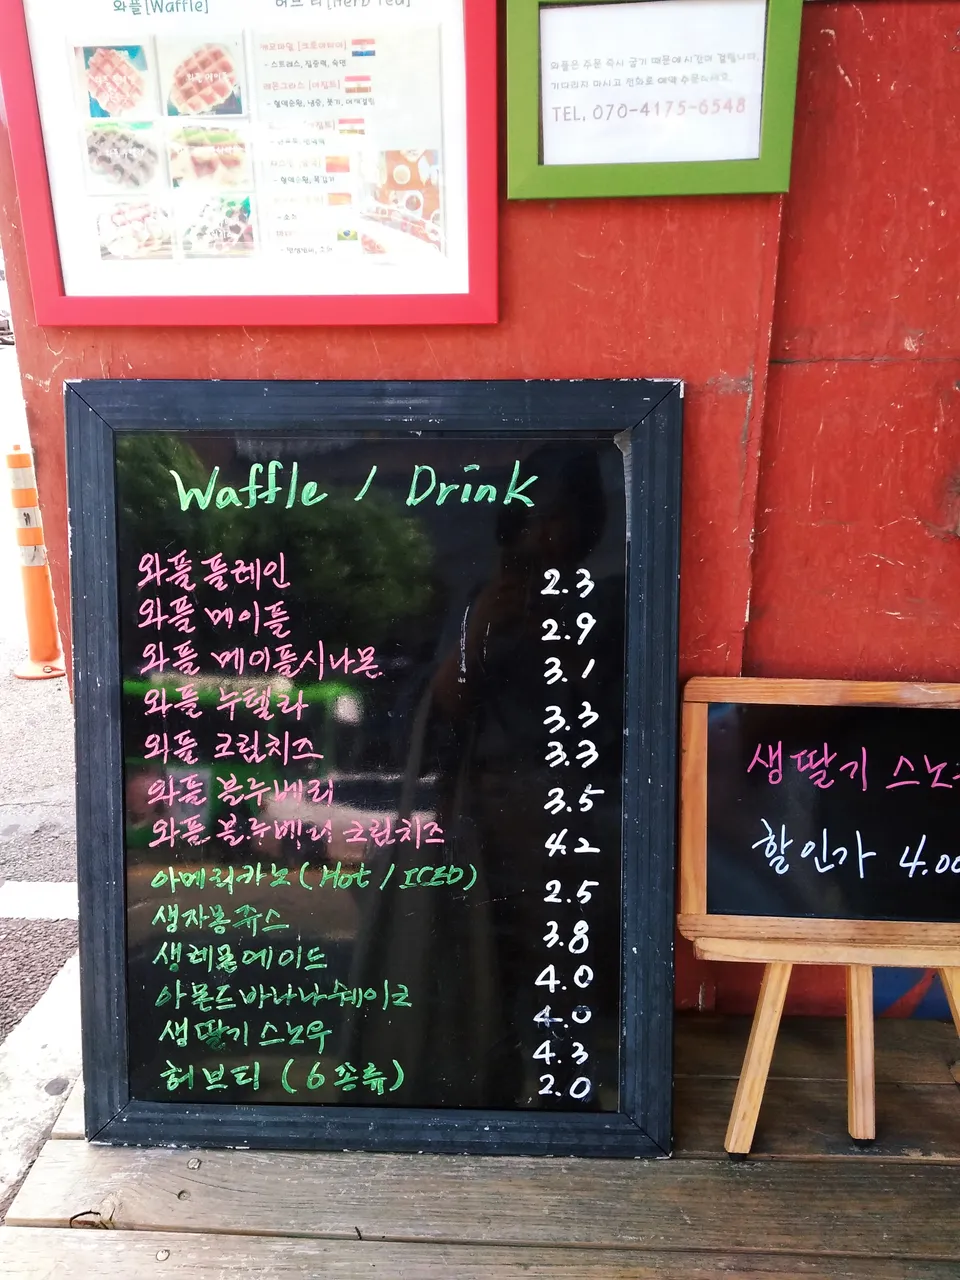 와플[Waffle]
허브티[Herb Tea]
- 스트레스, 집중력, 숙면
와플은 주문 즉시 굽기 때문에 시간이 걸립니다.
기다리지 마시고 전화로 예약 주문하세요.
TEL, 070-4175-6548
Waffle / Drink
와플 플레인 2.3
와플 메이플 2.9
와플 메이플시나몬 3.1
와플 누텔라 3.3
와플 크림치즈 3.3
와플 블루베리 3.5
와플 블루베리 크림치즈 4.2
아메리카노 (Hot / ICED) 2.5
생자몽쥬스 3.8
생레몬에이드 4.0
아몬드바나나쉐이크 4.0
생딸기 스노우 4.3
허브티 (6종류) 2.0
생딸기 스노
할인가 4.00